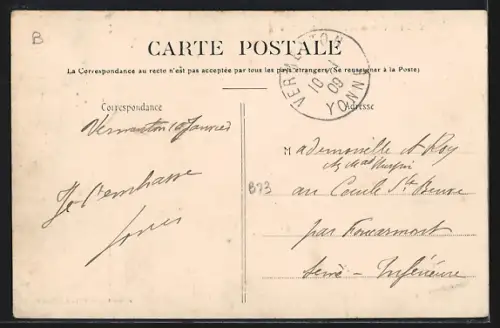 B
CARTE POSTALE
La Correspondance au recto n'est pas acceptée par tous les pays étrangers (Se renseigner à la Poste)
VERMENTON
10
09
YONNE
Correspondance
Adresse
Vermenton 10 Janvier
Je t'embrasse
Mademoiselle A Roy
B73
au Caule Ste Beuve
par Foucarmont
Seine-Inférieure